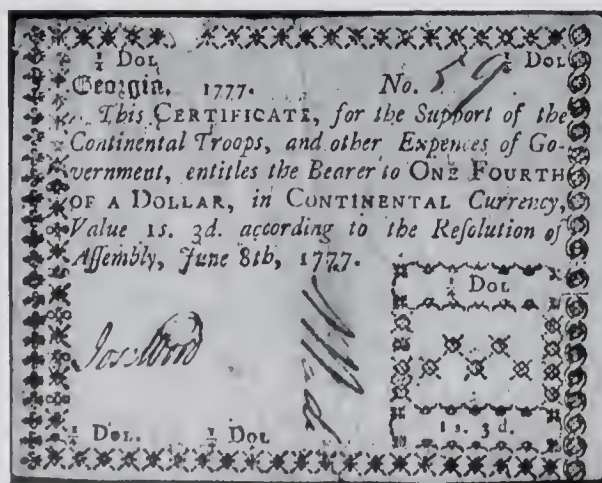 ¼ Dol ¼ Dol
Georgia. 1777. No. 59
This CERTIFICATE, for the Support of the
Continental Troops, and other Expences of Go-
vernment, entitles the Bearer to ONE FOURTH
OF A DOLLAR, in CONTINENTAL Currency,
Value 1s. 3d. according to the Reſolution of
Aſſembly, June 8th, 1777.
¼ Dol
1s. 3d.
¼ Dol. ¼ Dol